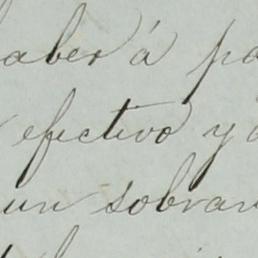 aber á pa
efectivo y a
un sobran